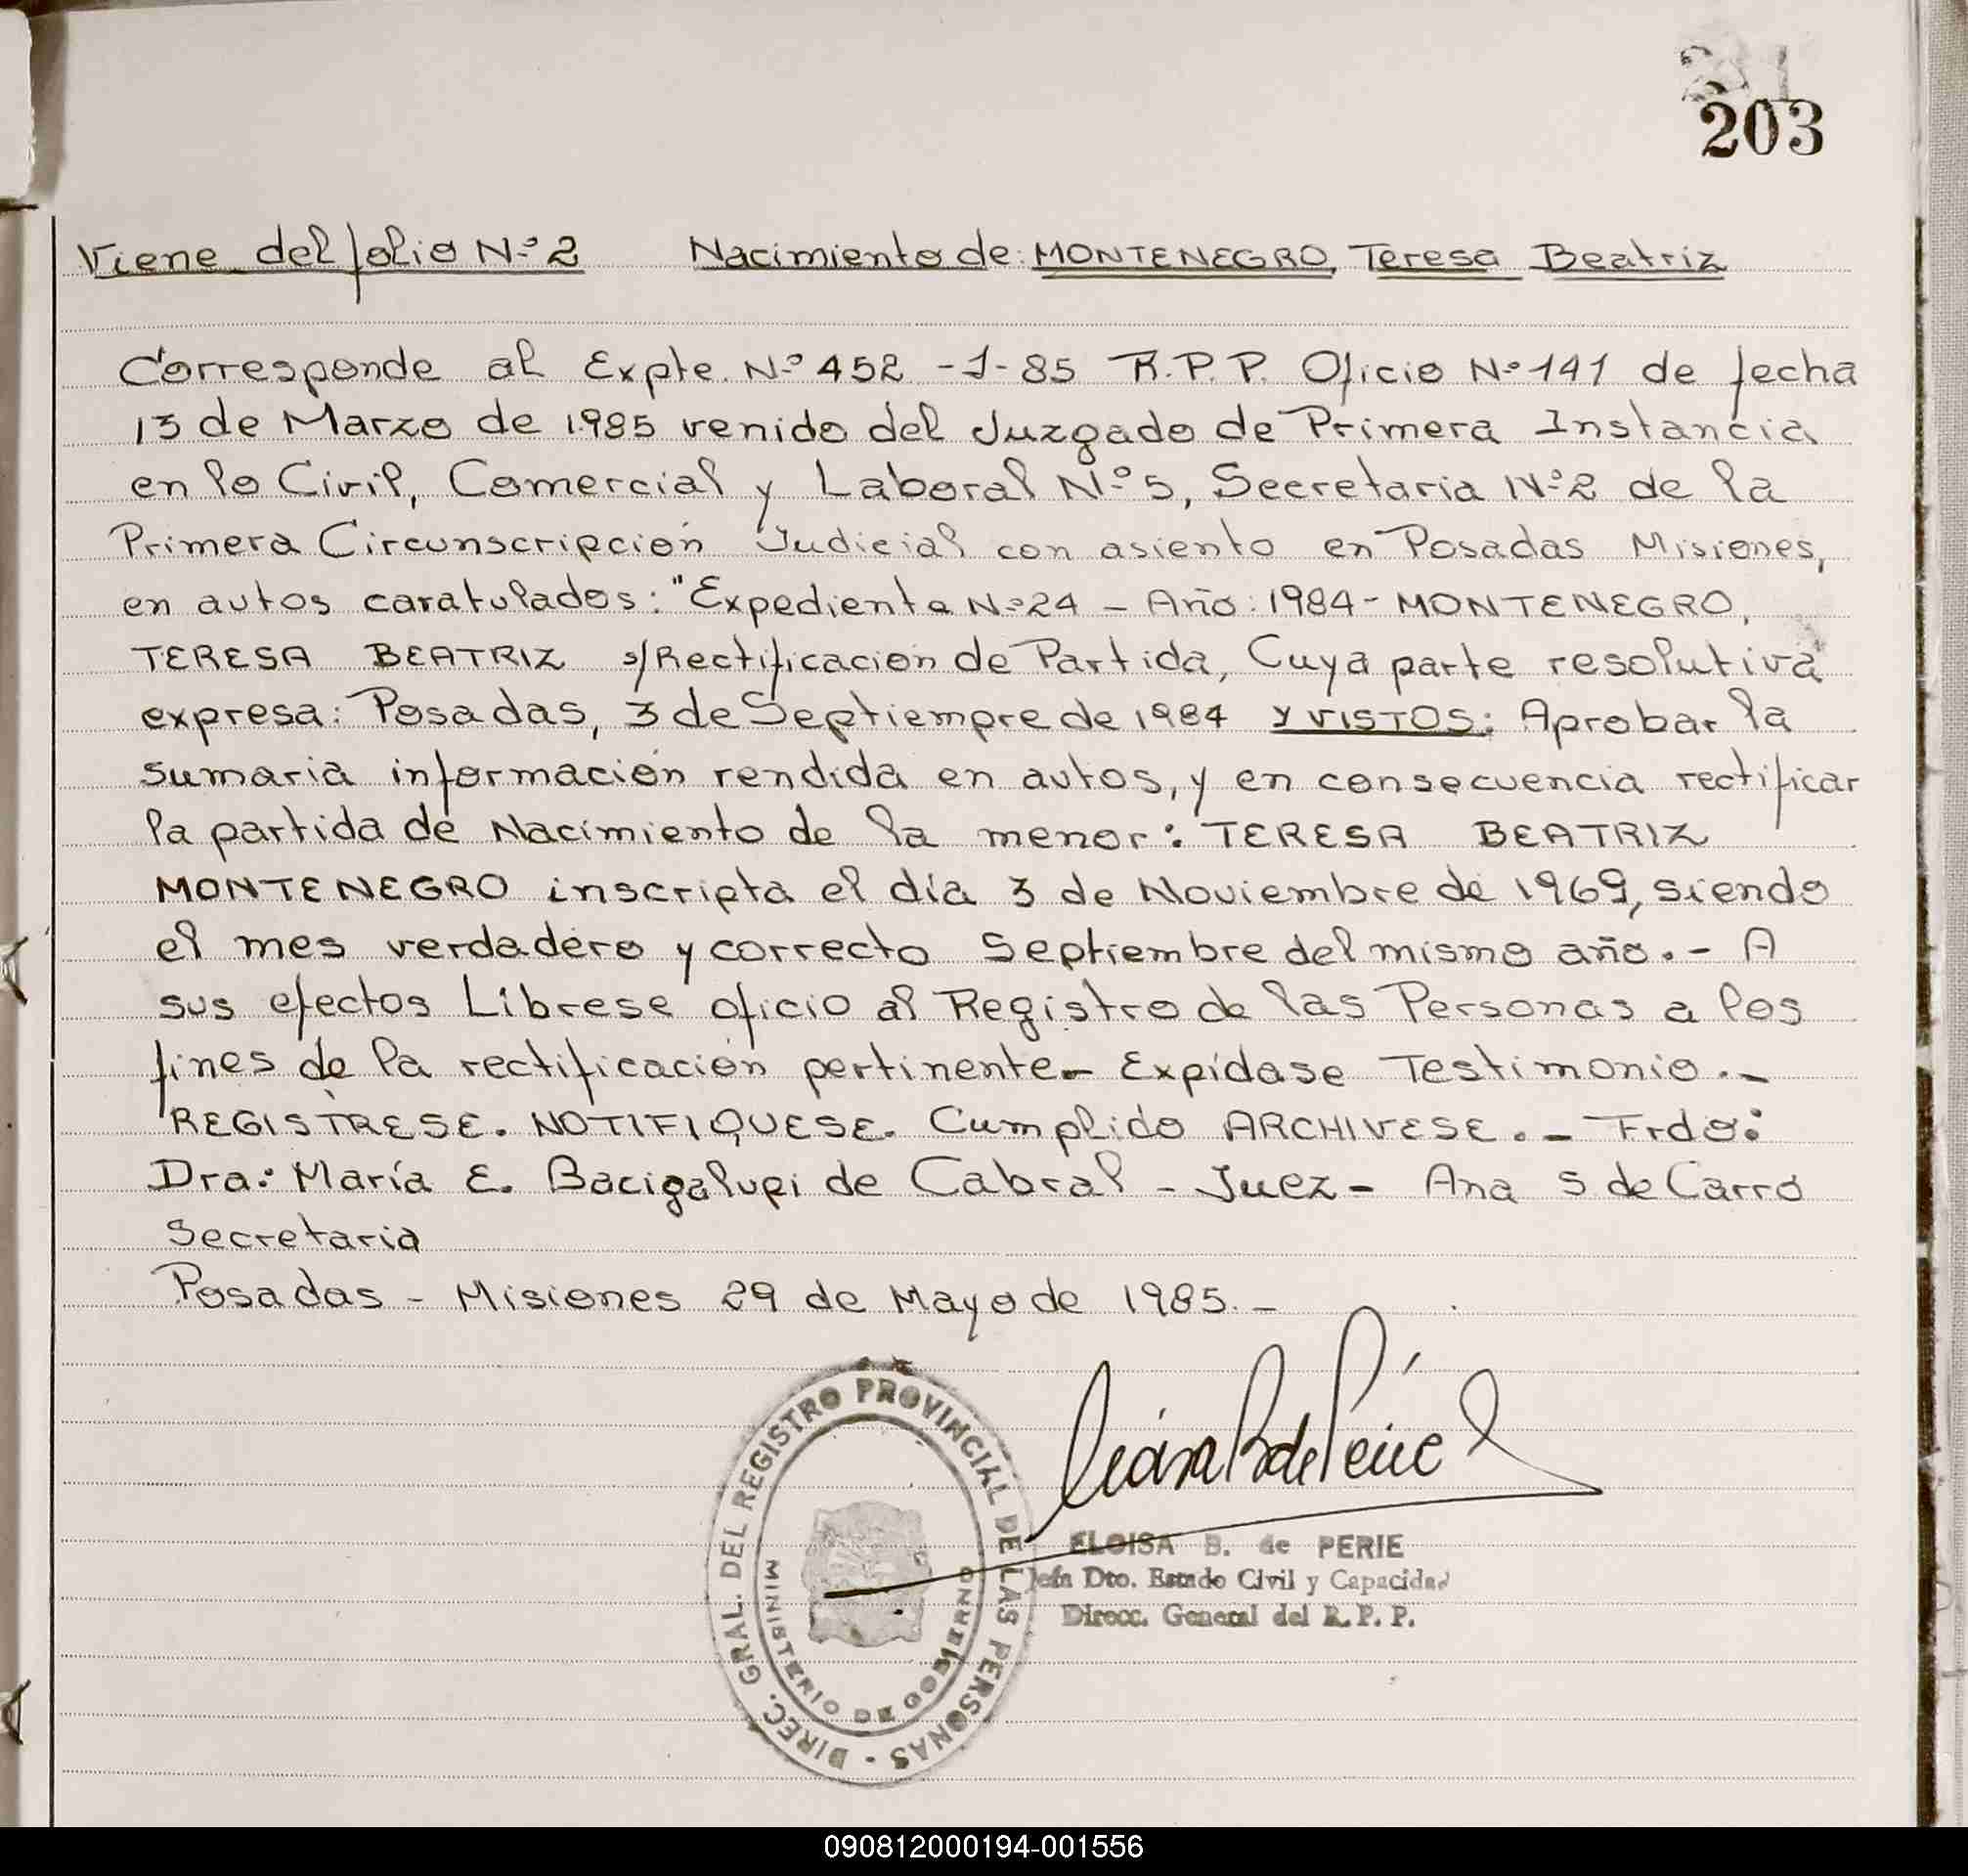 203
Viene del folio Nº 2 Nacimiento de: MONTENEGRO, Teresa Beatriz
Corresponde al Expte. Nº 452 -J- 85 R.P.P. Oficio Nº 141 de fecha
13 de Marzo de 1985 venido del Juzgado de Primera Instancia
en lo Civil, Comercial y Laboral Nº 5, Secretaria Nº 2 de la
Primera Circunscripción Judicial con asiento en Posadas Misiones,
en autos caratulados: "Expediente Nº 24 - Año: 1984 - MONTENEGRO,
TERESA BEATRIZ s/Rectificación de Partida, Cuya parte resolutiva
expresa: Posadas, 3 de Septiempre de 1984 Y VISTOS: Aprobar la
sumaria información rendida en autos, y en consecuencia rectificar
la partida de Nacimiento de la menor: TERESA BEATRIZ
MONTENEGRO inscripta el día 3 de Noviembre de 1969, siendo
el mes verdadero y correcto Septiembre del mismo año. - A
sus efectos Líbrese oficio al Registro de las Personas a los
fines de la rectificación pertinente- Expídase Testimonio. -
REGISTRESE. NOTIFIQUESE. Cumplido ARCHIVESE. - Frdo:
Dra: María E. Bacigalupi de Cabral - Juez - Ana S de Carró
Secretaria
Posadas - Misiones 29 de Mayo de 1985. -
DIREC. GRAL. DEL REGISTRO PROVINCIAL DE LAS PERSONAS -
MINISTERIO DE GOBIERNO
ELOISA B. de PERIE
Jefa Dto. Estado Civil y Capacidad
Direcc. General del R. P. P.
090812000194-001556